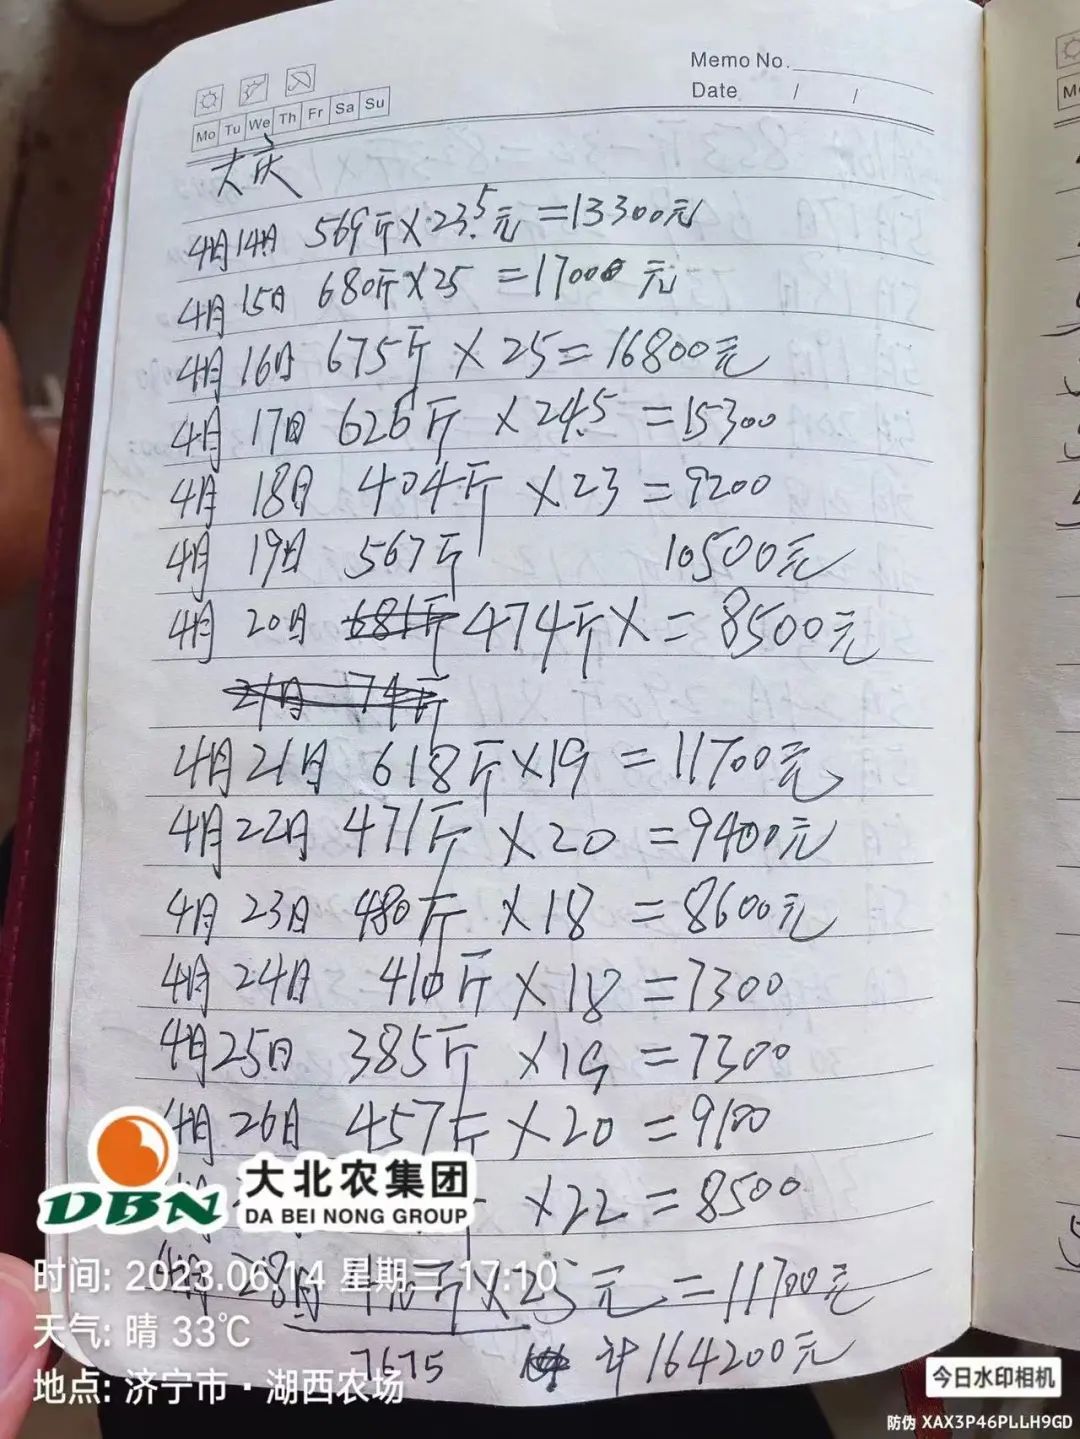 Memo No.
Date / /
Mo Tu We Th Fr Sa Su
大庆
4月14日 569斤×23.5元=13300元
4月15日 680斤×25=17000元
4月16日 675斤×25=16800元
4月17日 626斤×24.5=15300
4月18日 404斤×23=9200
4月19日 567斤 10500元
4月20日 681斤 474斤×=8500元
21日 74斤
4月21日 618斤×19=11700元
4月22日 471斤×20=9400元
4月23日 480斤×18=8600元
4月24日 410斤×18=7300
4月25日 385斤×19=7300
4月26日 457斤×20=9100
×22=8500
4月28日 斤×25元=11700元
7675 计164200元
DBN 大北农集团
DA BEI NONG GROUP
时间: 2023.06.14 星期三 17:10
天气: 晴 33℃
地点: 济宁市·湖西农场
今日水印相机
防伪 XAX3P46PLLH9GD